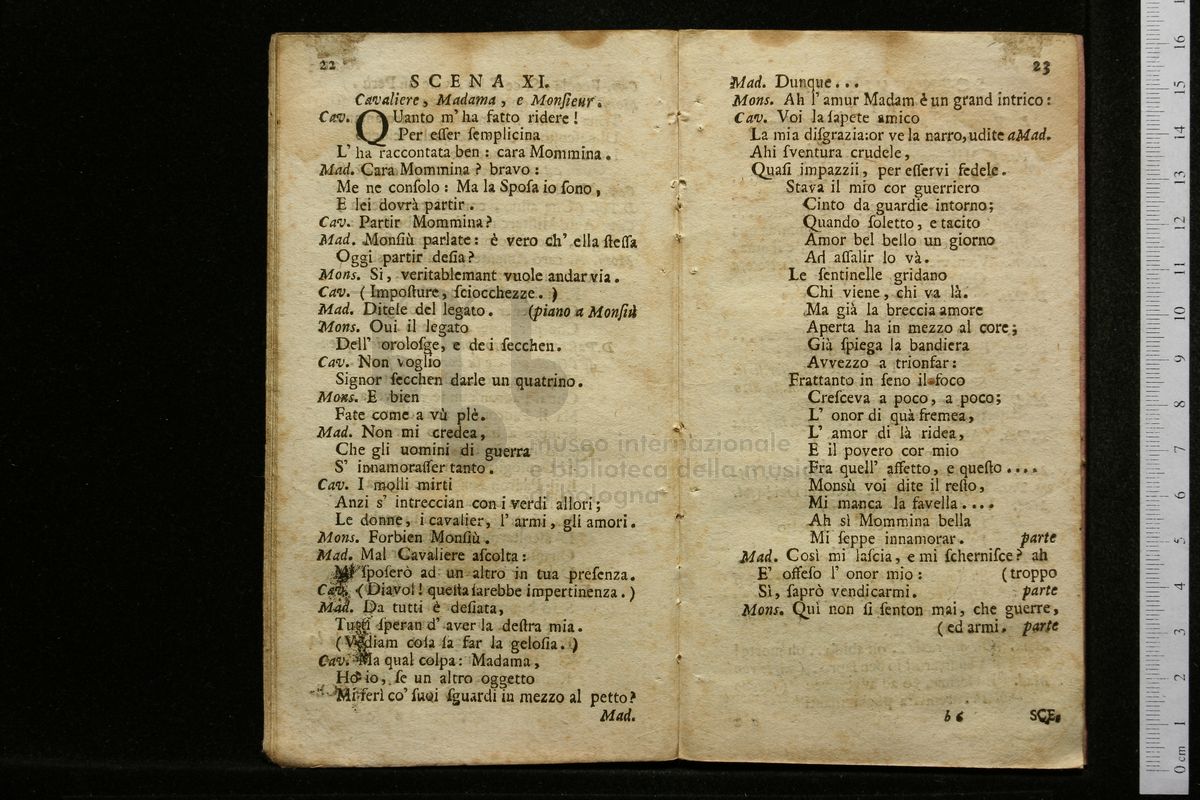 22
SCENA XI.
Cavaliere, Madama, e Monſieur.
Cav. QUanto m' ha fatto ridere!
Per eſſer ſemplicina
L' ha raccontata ben: cara Mommina.
Mad. Cara Mommina? bravo:
Me ne conſolo: Ma la Spoſa io ſono,
E lei dovrà partir.
Cav. Partir Mommina?
Mad. Monſiù parlate: è vero ch' ella ſteſſa
Oggi partir deſia?
Mons. Sì, veritablemant vuole andar via.
Cav. (Impoſture, ſciocchezze.)
Mad. Ditele del legato. (piano a Monſiù
Mons. Oui il legato
Dell' oroloſge, e dei ſecchen.
Cav. Non voglio
Signor ſecchen darle un quatrino.
Mons. E bien
Fate come a vù plè.
Mad. Non mi credea,
Che gli uomini di guerra
S' innamoraſſer tanto.
Cav. I molli mirti
Anzi s' intreccian con i verdi allori;
Le donne, i cavalier, l' armi, gli amori.
Mons. Forbien Monſiù.
Mad. Mal Cavaliere aſcolta:
Mi ſpoſerò ad un altro in tua preſenza.
Cav. (Diavol! queſta ſarebbe impertinenza.)
Mad. Da tutti è deſiata,
Tutti ſperan d' aver la deſtra mia.
(Vediam coſa ſa far la geloſia.)
Cav. Ma qual colpa: Madama,
Ho io, ſe un altro oggetto
Mi ferì co' ſuoi ſguardi in mezzo al petto?
Mad.
23
Mad. Dunque...
Mons. Ah l' amur Madam è un grand intrico:
Cav. Voi la ſapete amico
La mia diſgrazia: or ve la narro, udite aMad.
Ahi ſventura crudele,
Quaſi impazzii, per eſſervi fedele.
Stava il mio cor guerriero
Cinto da guardie intorno;
Quando ſoletto, e tacito
Amor bel bello un giorno
Ad aſſalir lo và.
Le ſentinelle gridano
Chi viene, chi va là.
Ma già la breccia amore
Aperta ha in mezzo al core;
Già ſpiega la bandiera
Avvezzo a trionfar:
Frattanto in ſeno il foco
Creſceva a poco, a poco;
L' onor di quà fremea,
L' amor di là ridea,
E il povero cor mio
Fra quell' affetto, e queſto....
Monsù voi dite il reſto,
Mi manca la favella....
Ah sì Mommina bella
Mi ſeppe innamorar. parte
Mad. Così mi laſcia, e mi ſcherniſce? ah
E' offeſo l' onor mio: (troppo
Sì, ſaprò vendicarmi. parte
Mons. Quì non ſi ſenton mai, che guerre,
(ed armi. parte
b 6 SCE.
museo internazionale
e biblioteca della musica
di bologna